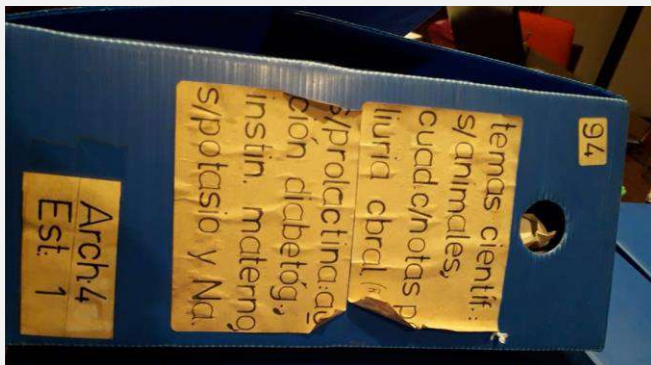 94
temas científ.:
s/animales,
cuad.c/notas p
liuria cbral.
s/prolactina:ac
ción diabetóg.;
instin. materno,
s/potasio y Na.
Arch.4
Est. 1